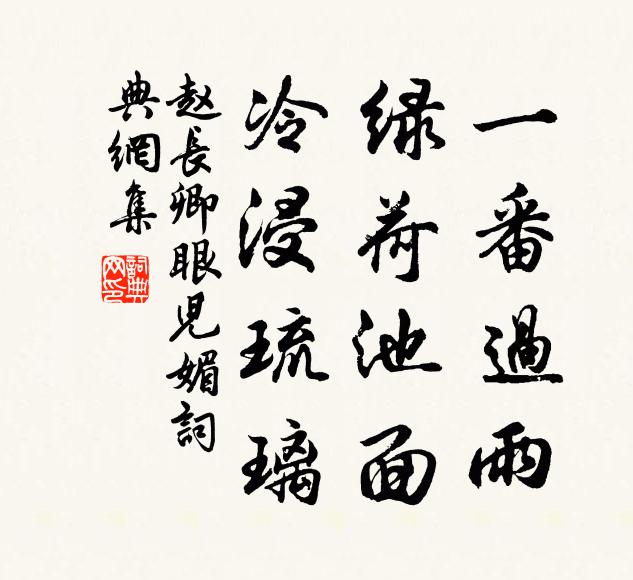 一番過雨
緑荷池面
冷浸琉璃
赵長卿眼児媚詞
典網集
詞典
网印